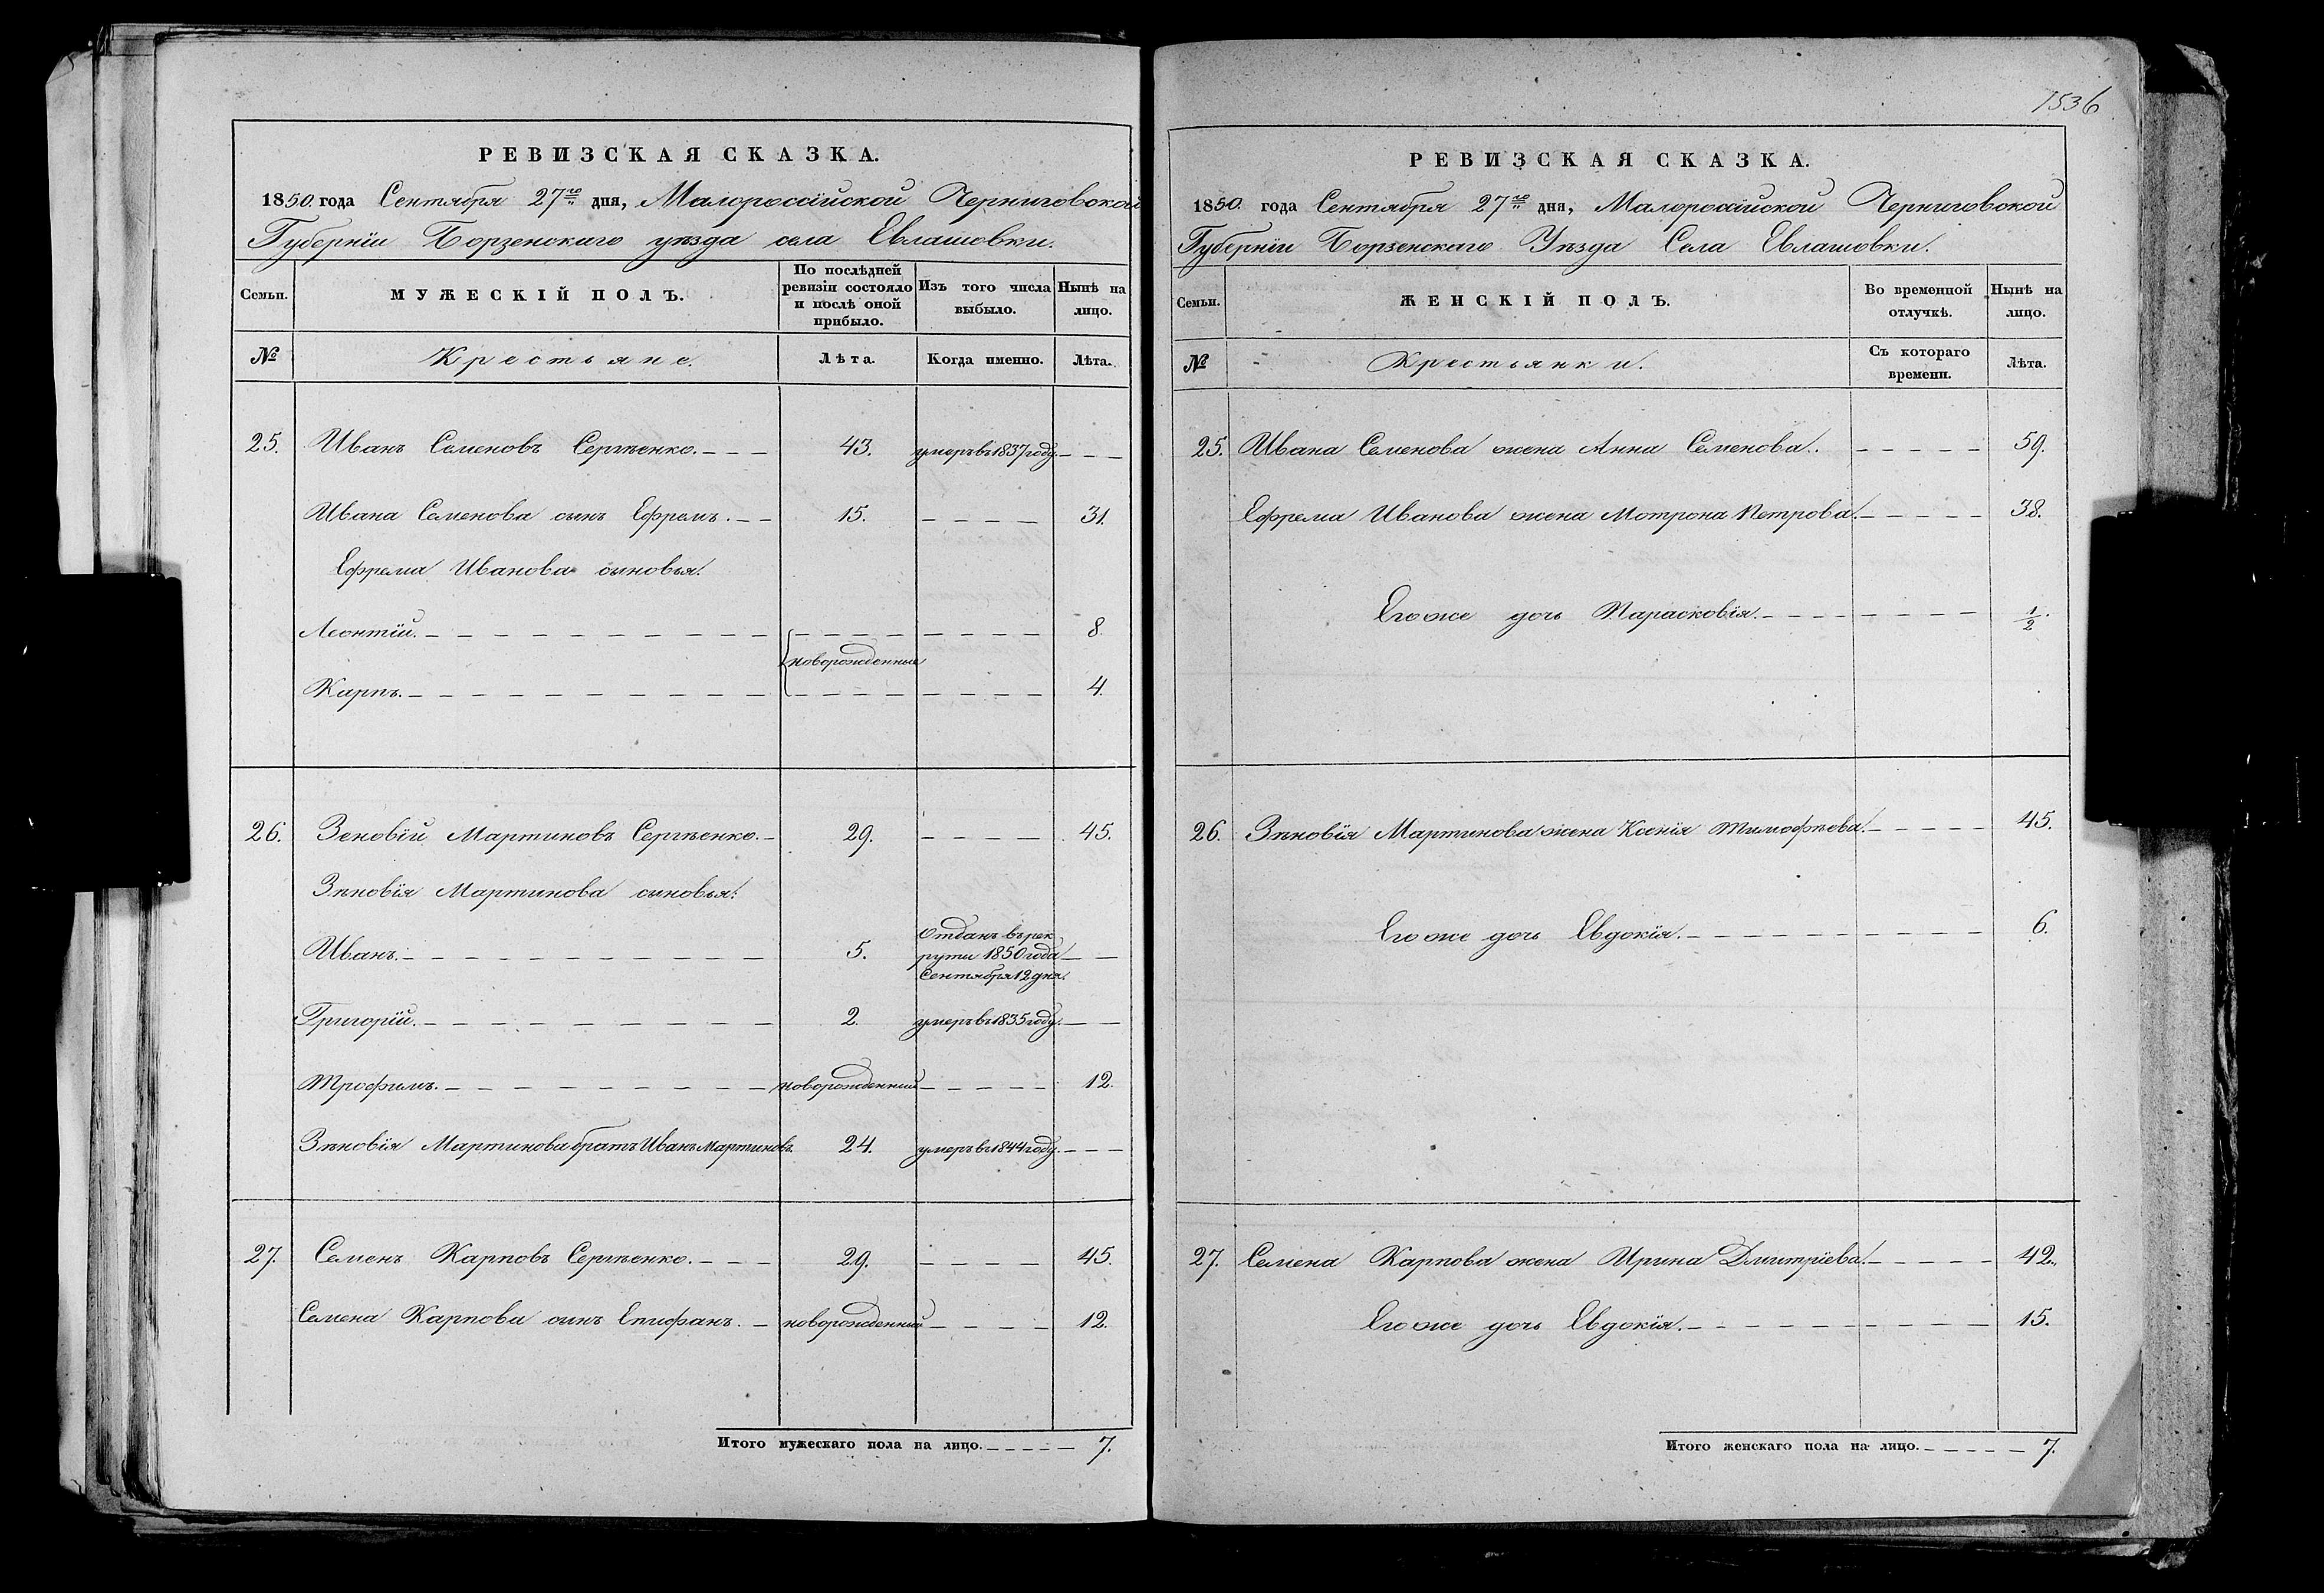 РЕВИЗСКАЯ СКАЗКА.
1850. года Сентября 27го дня, Малороссійской Черниговской
Губерніи Борзенскаго уѣзда села Евлашовки.
Семьи.
МУЖЕСКІЙ ПОЛЪ.
По послѣдней ревизіи состояло и послѣ оной прибыло.
Изъ того числа выбыло.
Нынѣ на лицо.
№
Крестьяне.
Лѣта.
Когда именно.
Лѣта.
25. Иванъ Семеновъ Сергѣенко. 43. умеръ въ 1837 году.
Ивана Семенова сынъ Ефремъ. 15. 31.
Ефрема Иванова сыновья:
Леонтій. 8.
новорожденные
Карпъ. 4.
26. Зеновій Мартиновъ Сергѣенко. 29. 45.
Зѣновія Мартинова сыновья:
Иванъ. 5. Отданъ въ рек
рути 1850 года
Сентября 12 дня.
Григорій. 2. умеръ въ 1835 году.
Трофимъ. новорожденный 12.
Зѣновія Мартинова братъ Иванъ Мартиновъ. 24. умеръ въ 1844 году.
27. Семенъ Карповъ Сергѣенко. 29. 45.
Семена Карпова синъ Епифанъ. новорожденный 12.
Итого мужескаго пола на лицо. 7.
1536
РЕВИЗСКАЯ СКАЗКА.
1850. года Сентября 27го дня, Малороссійской Черниговской
Губерніи Борзенскаго Уѣзда Села Евлашовки.
Семьи.
ЖЕНСКІЙ ПОЛЪ.
Во временной отлучкѣ.
Нынѣ на лицо.
№
Крестьянки.
Съ котораго времени.
Лѣта.
25. Ивана Семенова жена Анна Семенова. 59.
Ефрема Иванова жена Мотрона Петрова. 38.
Его же дочь Парасковія. 1/2.
26. Зѣновія Мартинова жена Ксенія Тимофѣева. 45.
Его же дочь Евдокія. 6.
27. Семена Карпова жена Ирина Дмитріева. 42.
Его же дочь Евдокія. 15.
Итого женскаго пола на лицо. 7.